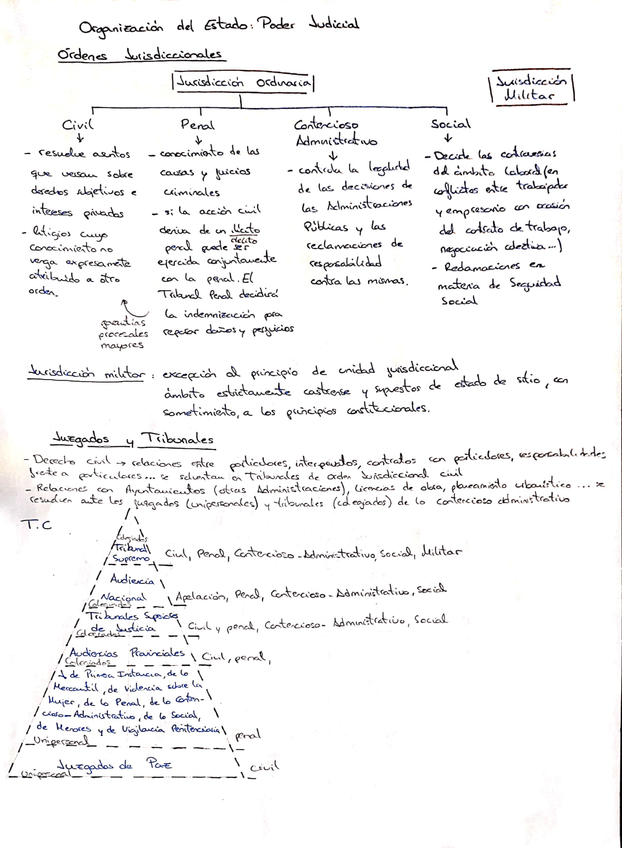 Organización del Estado: Poder Judicial
Órdenes Jurisdiccionales
Jurisdicción Ordinaria
Jurisdicción
Militar
Civil
- resuelve asuntos
que versan sobre
derechos subjetivos e
intereses privados
- litigios cuyo
conocimiento no
venga expresamente
atribuido a otro
orden.
garantías
procesales
mayores
Penal
- conocimiento de las
causas y juicios
criminales
- si la acción civil
deriva de un ilícito
delito
penal puede ser
ejercida conjuntamente
con la penal. El
Tribunal Penal decidirá
la indemnización para
reparar daños y perjuicios
Contencioso
Administrativo
- controla la legalidad
de las decisiones de
las Administraciones
Públicas y las
reclamaciones de
responsabilidad
contra las mismas.
Social
- Decide las controversias
del ámbito laboral (en
conflictos entre trabajador
y empresario con ocasión
del contrato de trabajo,
negociación colectiva...)
- Reclamaciones en
materia de Seguridad
Social
Jurisdicción militar: excepción al principio de unidad jurisdiccional
ámbito estrictamente castrense y supuestos de estado de sitio, con
sometimiento, a los principios constitucionales.
Juzgados y Tribunales
- Derecho civil → relaciones entre particulares, contratos con particulares, responsabilidades
frente a particulares... se solventan en Tribunales de orden Jurisdiccional civil
- Relaciones con Ayuntamientos (otras Administraciones), licencias de obra, planeamiento urbanístico ... se
resuelven ante los juzgados (unipersonales) y tribunales (colegiados) de lo contencioso administrativo
T.C
Colegiados
Tribunal
Supremo
Civil, Penal, Contencioso-Administrativo, Social, Militar
Audiencia
Nacional
Colegiados
Apelación, Penal, Contencioso-Administrativo, Social
Tribunales Superiores
de Justicia
Colegiados
Civil y penal, Contencioso-Administrativo, Social
Audiencias Provinciales
Colegiados
Civil, penal,
J. de Primera Instancia, de lo
Mercantil, de Violencia sobre la
Mujer, de lo Penal, de lo Conten-
cioso-Administrativo, de lo Social,
de Menores y de Vigilancia Penitenciaria
Unipersonal
penal
Juzgados de Paz
Unipersonal
civil